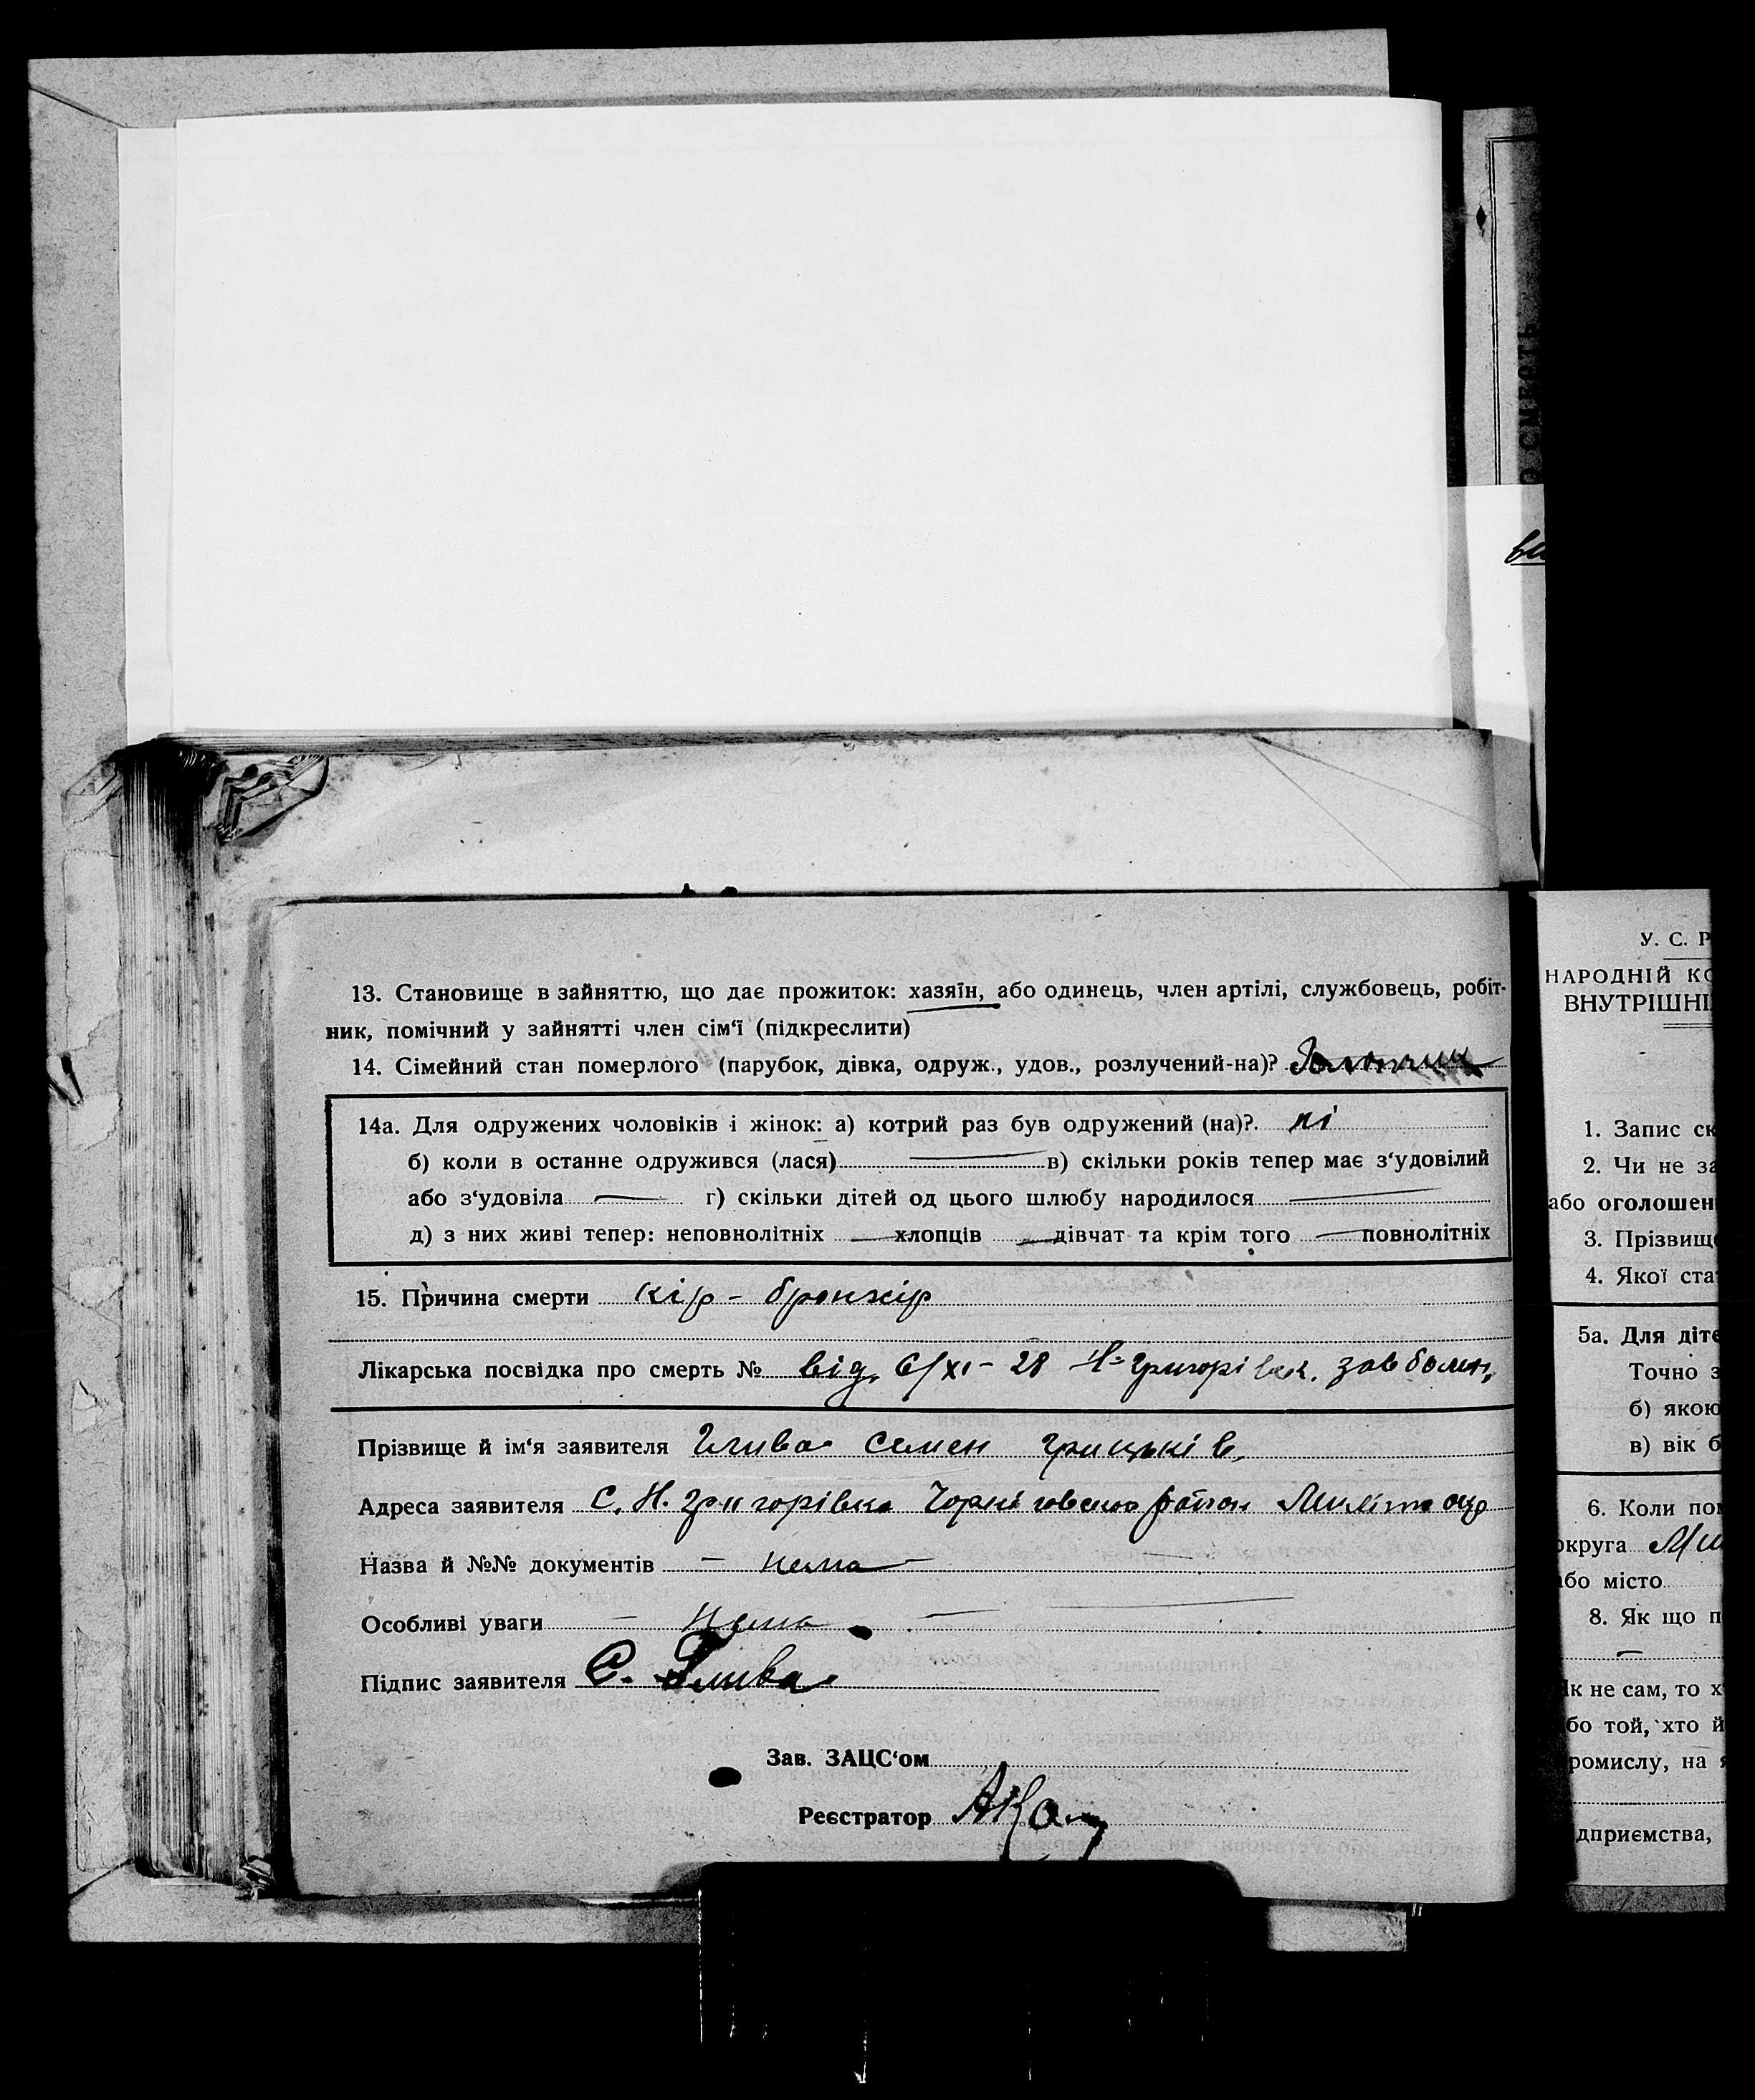 13. Становище в зайняттю, що дає прожиток: хазяїн, або одинець, член артілі, службовець, робіт-
ник, помічний у зайнятті член сім‘ї (підкреслити)
14. Сімейний стан померлого (парубок, дівка, одруж., удов., розлучений-на)?
14а. Для одружених чоловіків і жінок: а) котрий раз був одружений (на)? ні
б) коли в останнє одружився (лася) — в) скільки років тепер має з‘удовілий
або з‘удовіла — г) скільки дітей од цього шлюбу народилося —
д) з них живі тепер: неповнолітніх — хлопців — дівчат та крім того — повнолітніх
15. Причина смерти кір - бронхір
Лікарська посвідка про смерть № від. 6/XI - 28 Н-Григорівск.
Прізвище й ім‘я заявителя Глива Семен Грицьків
Адреса заявителя С. Н. Григорівка Чорнигівського район Меліт окр
Назва й №№ документів — нема —
Особливі уваги — нема —
Підпис заявителя С. Глива
Зав. ЗАЦС‘ом
Реєстратор
У. С. Р
НАРОДНІЙ КО
ВНУТРІШНІ
1. Запис ск
2. Чи не за
або оголошен
3. Прізвище
4. Якої ста
5а. Для діте
Точно з
б) якою
в) вік б
6. Коли по
округа
або місто
8. Як що п
—
Як не сам, то х
бо той, хто й
ромислу, на я
дприємства,